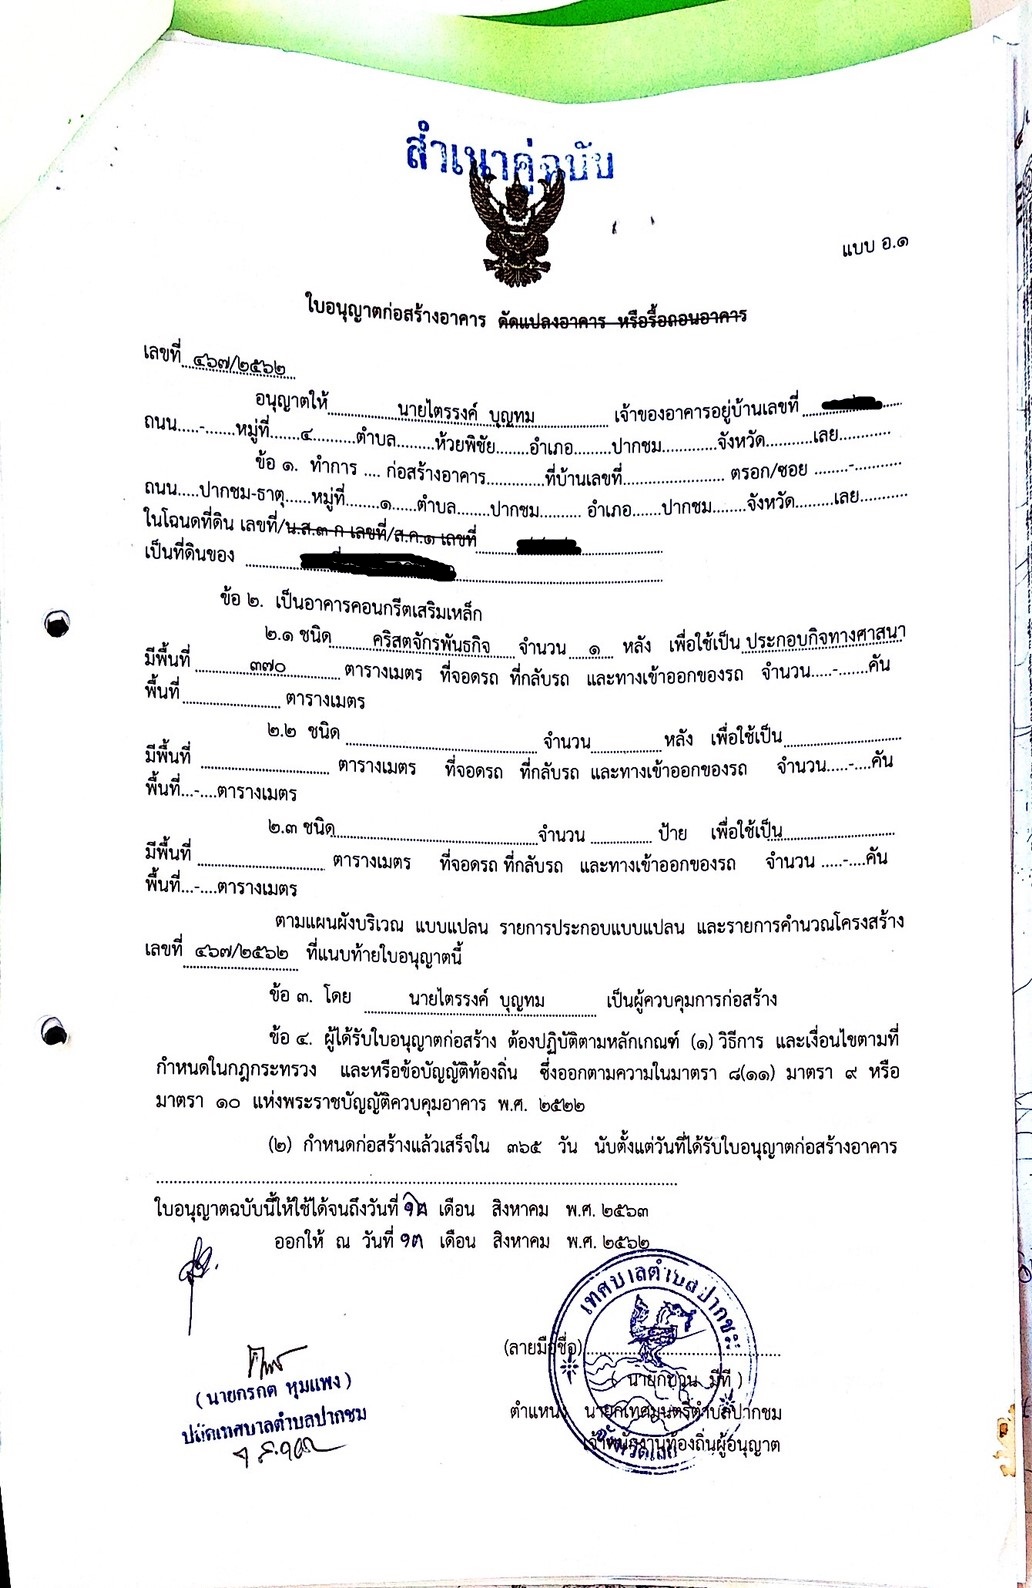 สำเนาคู่ฉบับ
แบบ อ.๑
ใบอนุญาตก่อสร้างอาคาร ดัดแปลงอาคาร หรือรื้อถอนอาคาร
เลขที่ ๔๖๗/๒๕๖๒
อนุญาตให้ นายไตรรงค์ บุญทม เจ้าของอาคารอยู่บ้านเลขที่
ถนน.....-......หมู่ที่.......๔..........ตำบล........ห้วยพิชัย.......อำเภอ........ปากชม............จังหวัด..........เลย...........
ข้อ ๑. ทำการ .... ก่อสร้างอาคาร.............ที่บ้านเลขที่....................... ตรอก/ซอย ........-...........
ถนน.....ปากชม-ธาตุ......หมู่ที่........๑......ตำบล.......ปากชม.......... อำเภอ......ปากชม.......จังหวัด........เลย..........
ในโฉนดที่ดิน เลขที่/น.ส.๓ ก เลขที่/ส.ค.๑ เลขที่
เป็นที่ดินของ
ข้อ ๒. เป็นอาคารคอนกรีตเสริมเหล็ก
๒.๑ ชนิด คริสตจักรพันธกิจ จำนวน ๑ หลัง เพื่อใช้เป็น ประกอบกิจทางศาสนา
มีพื้นที่ ๓๗๐ ตารางเมตร ที่จอดรถ ที่กลับรถ และทางเข้าออกของรถ จำนวน.....-.......คัน
พื้นที่ ตารางเมตร
๒.๒ ชนิด จำนวน หลัง เพื่อใช้เป็น
มีพื้นที่ ตารางเมตร ที่จอดรถ ที่กลับรถ และทางเข้าออกของรถ จำนวน.....-....คัน
พื้นที่...-....ตารางเมตร
๒.๓ ชนิด จำนวน ป้าย เพื่อใช้เป็น
มีพื้นที่ ตารางเมตร ที่จอดรถ ที่กลับรถ และทางเข้าออกของรถ จำนวน .....-....คัน
พื้นที่...-....ตารางเมตร
ตามแผนผังบริเวณ แบบแปลน รายการประกอบแบบแปลน และรายการคำนวณโครงสร้าง
เลขที่ ๔๖๗/๒๕๖๒ ที่แนบท้ายใบอนุญาตนี้
ข้อ ๓. โดย นายไตรรงค์ บุญทม เป็นผู้ควบคุมการก่อสร้าง
ข้อ ๔. ผู้ได้รับใบอนุญาตก่อสร้าง ต้องปฏิบัติตามหลักเกณฑ์ (๑) วิธีการ และเงื่อนไขตามที่
กำหนดในกฎกระทรวง และหรือข้อบัญญัติท้องถิ่น ซึ่งออกตามความในมาตรา ๘(๑๑) มาตรา ๙ หรือ
มาตรา ๑๐ แห่งพระราชบัญญัติควบคุมอาคาร พ.ศ. ๒๕๒๒
(๒) กำหนดก่อสร้างแล้วเสร็จใน ๓๖๕ วัน นับตั้งแต่วันที่ได้รับใบอนุญาตก่อสร้างอาคาร
ใบอนุญาตฉบับนี้ให้ใช้ได้จนถึงวันที่ ๑๒ เดือน สิงหาคม พ.ศ. ๒๕๖๓
ออกให้ ณ วันที่ ๑๓ เดือน สิงหาคม พ.ศ. ๒๕๖๒
เทศบาลตำบลปากชม
(ลายมือชื่อ)
( นายกชวน มีที )
ตำแหน่ง นายกเทศมนตรีตำบลปากชม
เจ้าพนักงานท้องถิ่นผู้อนุญาต
จังหวัดเลย
(นายกรกต หุมแพง)
ปลัดเทศบาลตำบลปากชม